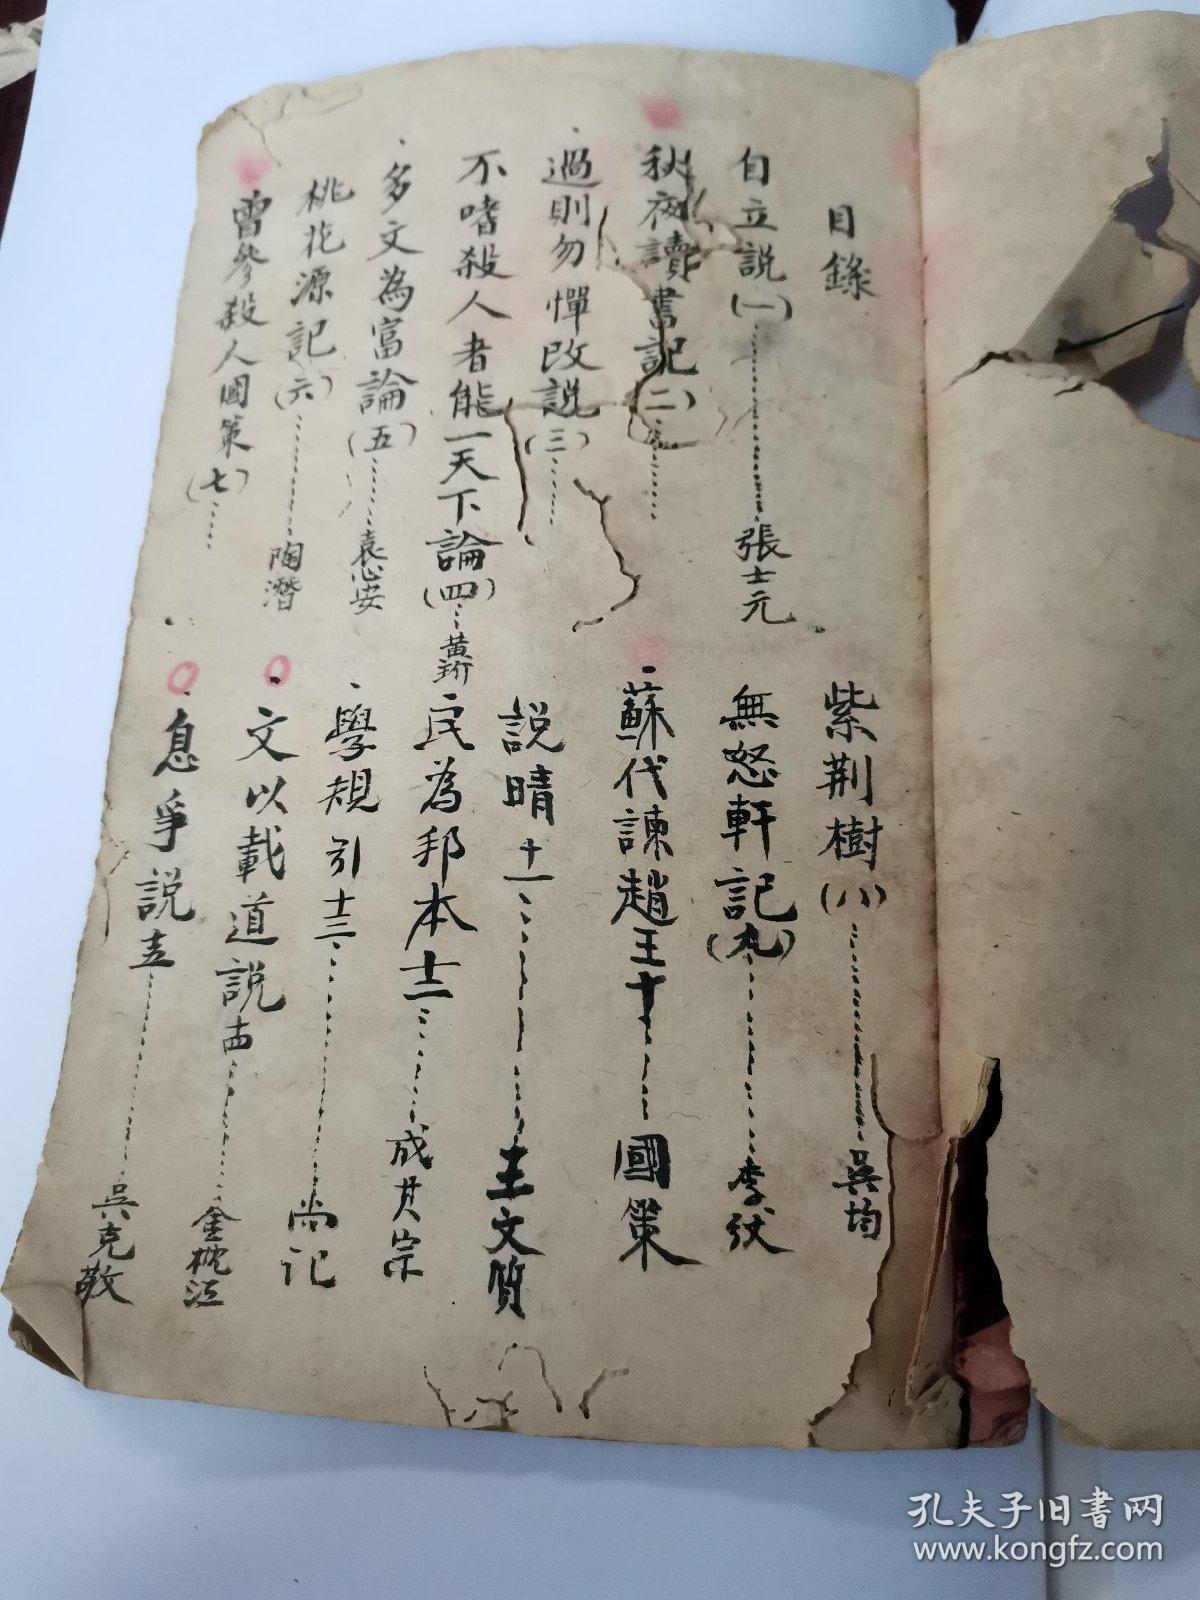 目錄
自立説(一)……張士元
秋夜讀書記(二)……
過則勿憚改説(三)……
不嗜殺人者能一天下論(四)…黄
多文為富論(五)……袁心安
桃花源記(六)……陶潛
曾參殺人國策(七)……
紫荆樹(八)……吳均
無怒軒記(九)……李紱
蘇代諫趙王十……國策
説晴十一……王文質
民為邦本十二……成其宗
學規引十三……尚記
文以載道説十四……金
息爭説十五……吳克敬
孔夫子旧书网
www.kongfz.com